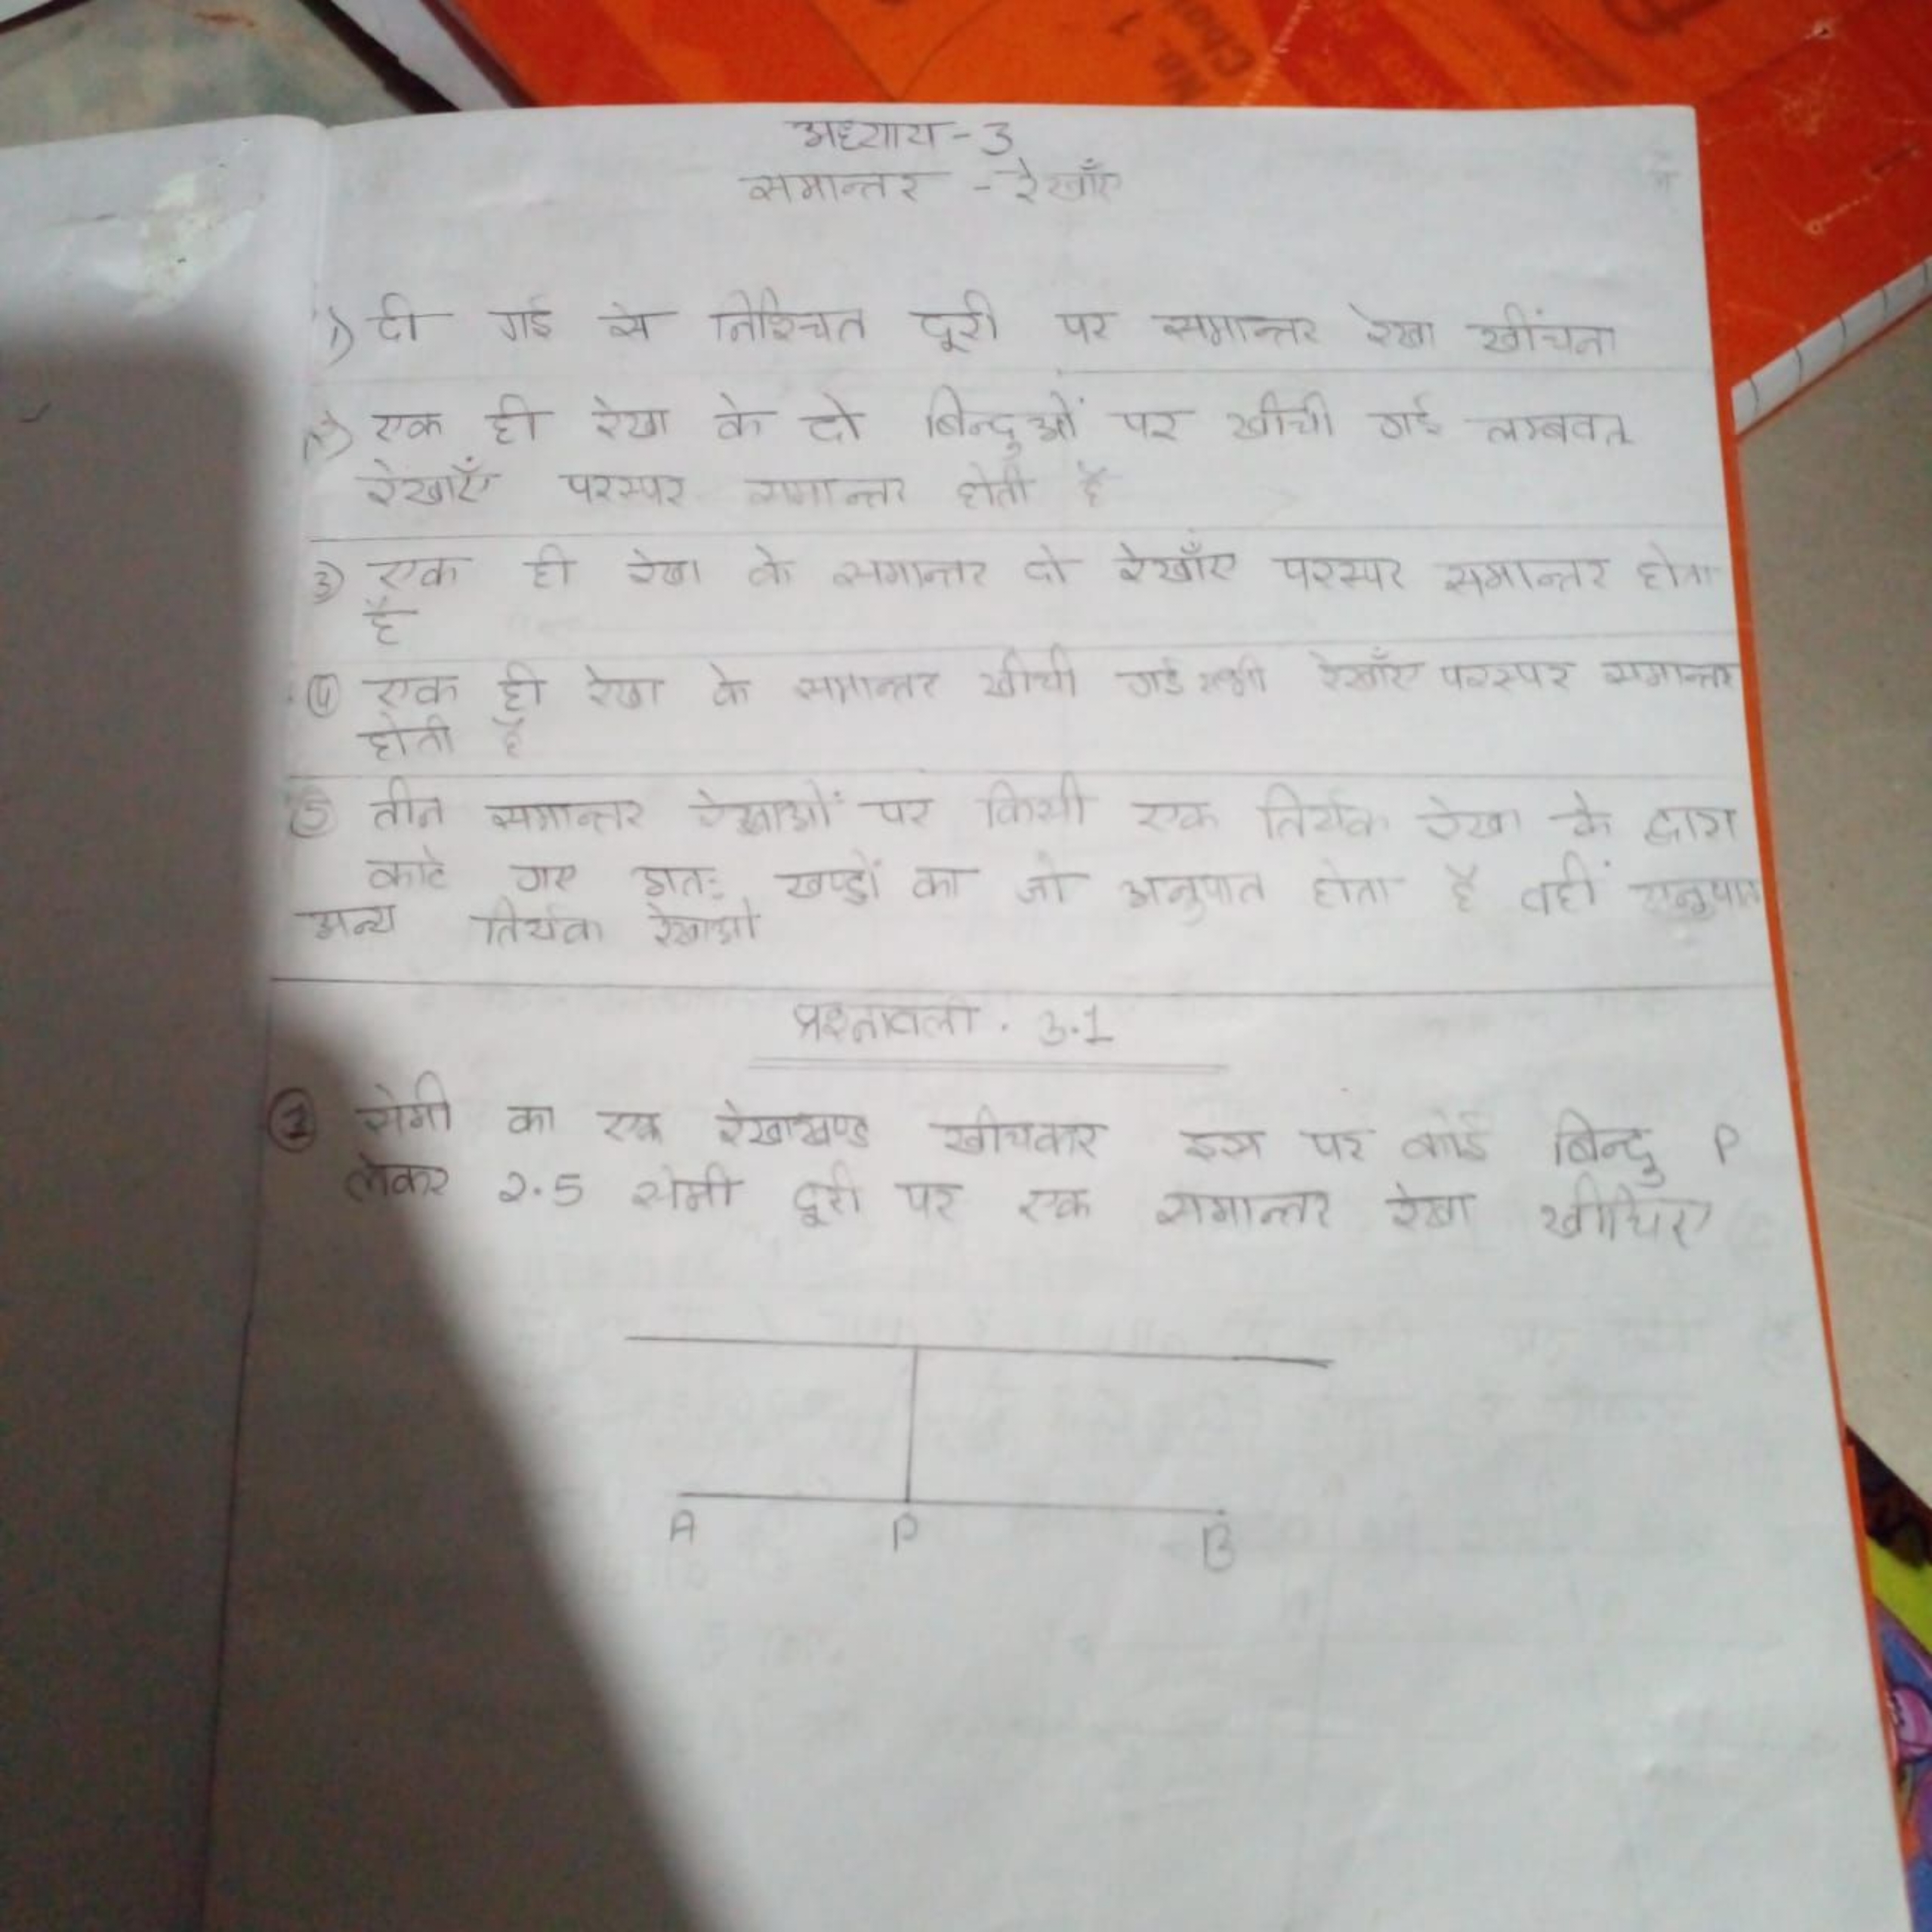 अध्याय - 3
समान्तर - रेखाँए
1) दी गई से निश्चित दूरी पर समान्तर रेखा खींचना
एक ही रेखा के दो बिन्दुओं पर खीची गई लम्बवत
रेखाएँ परस्पर समान्तर होती है
3) एक ही रेखा के समान्तर दो रेखाँए परस्पर समान्तर होता
है
④ एक ही रेखा के समान्तर खीची गई सभी रेखाँए परस्पर समान्तर
होती है
⑤ तीन समान्तर रेखाओं पर किसी एक तिर्यक रेखा के द्वारा
काटे गए अतः खण्डों का जो अनुपात होता है वहीं अनुपात
अन्य तिर्यक रेखाओ
प्रश्नावली . 3.1
① सेमी का एक रेखाखण्ड खीचकर इस पर कोई बिन्दु P
लेकर 2.5 सेमी दूरी पर एक समान्तर रेखा खीचिए
A P B